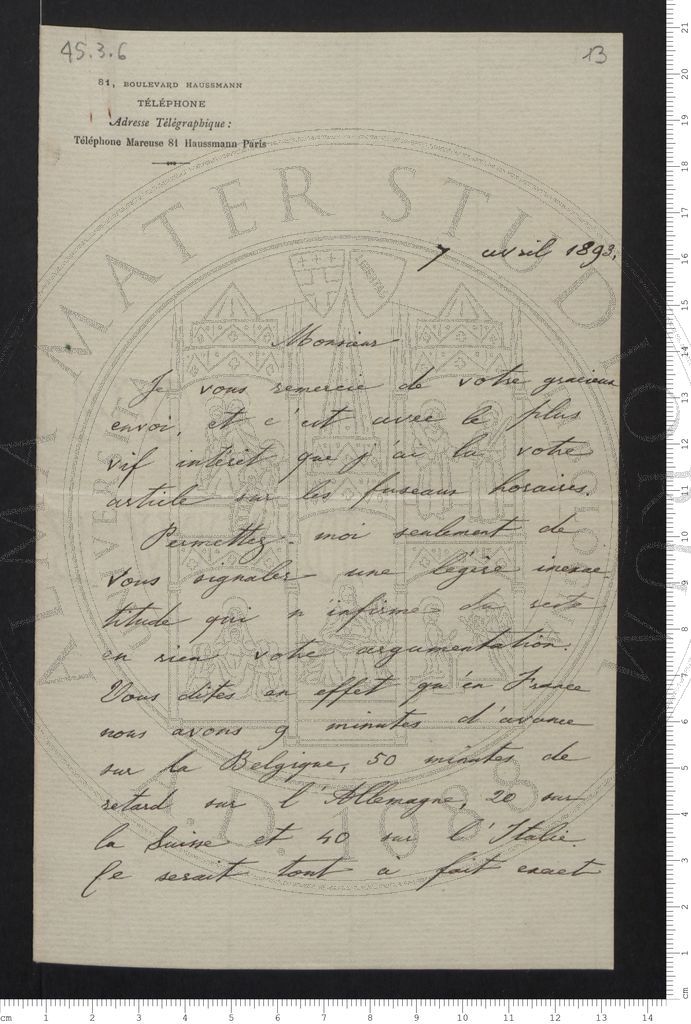 45.3.6
13
81, BOULEVARD HAUSSMANN
TÉLÉPHONE
Adresse Télégraphique :
Téléphone Mareuse 81 Haussmann Paris
7 avril 1893.
Monsieur
Je vous remercie de votre gracieux
envoi, et c'est avec le plus
vif intérêt que j'ai lu votre
article sur les fuseaux horaires.
Permettez-moi seulement de
vous signaler une légère inexac-
titude qui n'infirme du reste
en rien votre argumentation.
Vous dites en effet qu'en France
nous avons 9 minutes d'avance
sur la Belgique, 50 minutes de
retard sur l'Allemagne, 20 sur
la Suisse et 40 sur l'Italie.
Ce serait tout à fait exact
ALMA MATER STUDIORUM
A.D. 1088
LIBERTAS